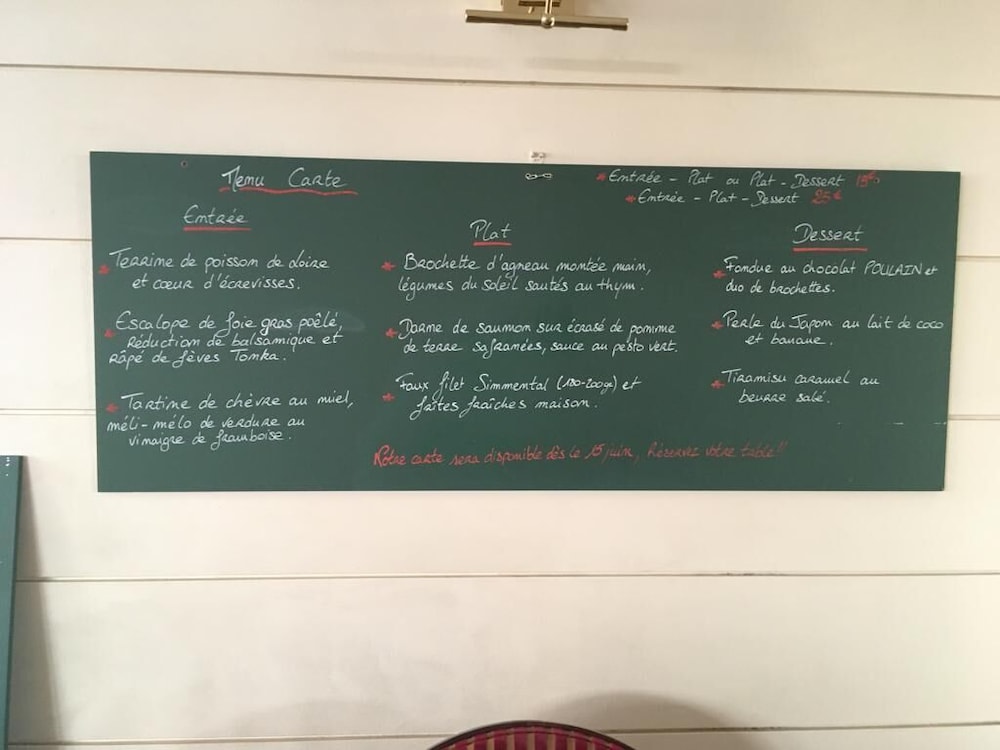 Menu Carte
* Entrée - Plat ou Plat - Dessert
* Entrée - Plat - Dessert 25€
Entrée
* Terrine de poisson de Loire
et cœur d'écrevisses.
* Escalope de foie gras poêlé,
Réduction de balsamique et
râpé de fèves Tonka.
* Tartine de chèvre au miel,
méli-mélo de verdure au
vinaigre de framboise.
Plat
* Brochette d'agneau montée main,
légumes du soleil sautés au thym.
* Darne de saumon sur écrasé de pomme
de terre safranées, sauce au pesto vert.
* Faux filet Simmental (180-200gr) et
frites fraîches maison.
Dessert
* Fondue au chocolat POULAIN et
duo de brochettes.
* Perle du Japon au lait de coco
et banane.
* Tiramisu caramel au
beurre salé.
Notre carte sera disponible dès le 15 juin, Réservez votre table!!